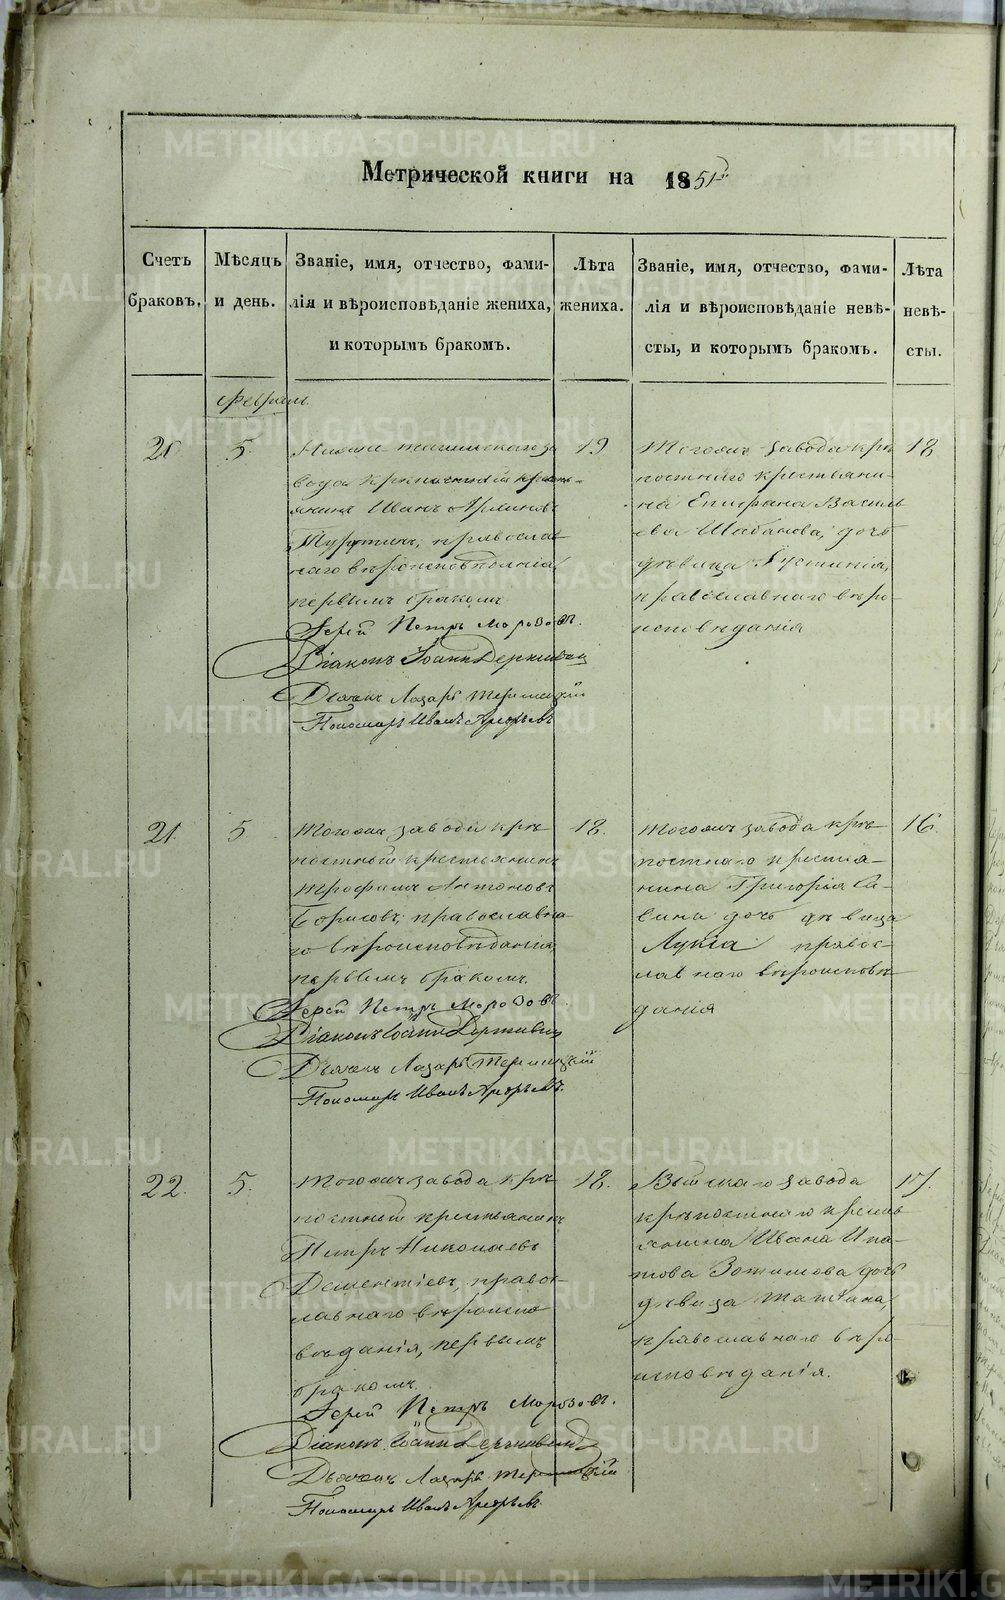 Метрической книги на 1851й
Счетъ браковъ.
Мѣсяцъ и день.
Званіе, имя, отчество, фами-
лія и вѣроисповѣданіе жениха,
и которымъ бракомъ.
Лѣта
жениха.
Званіе, имя, отчество, фами-
лія и вѣроисповѣданіе невѣ-
сты, и которымъ бракомъ.
Лѣта
невѣ-
сты.
Февраль.
20
5
за
вода крѣпостный кресть-
янинъ Иванъ
православ
наго вѣроисповѣданія
первымъ бракомъ
Іерей Петръ Морозовъ.
Діаконъ Іоаннъ
Дьячекъ Лазарь
Пономарь Иванъ
19
Тогожъ завода крѣ
постнаго крестьяни-
на Епифана Василь
ева Шабанова, дочь
дѣвица Іустинія,
православнаго вѣро-
исповѣданія
18
21.
5
Тогожъ завода крѣ
постный крестьянинъ
Трофимъ Антоновъ
Борисовъ, православна
го вѣроисповѣданія,
первымъ бракомъ.
Іерей Петръ Морозовъ.
Діаконъ Іоаннъ
Дьячекъ Лазарь
Пономарь Иванъ
18.
Тогожъ завода крѣ
постнаго крестья-
нина Григорія Са-
вина дочь дѣвица
Лукія православ-
наго вѣроисповѣ
данія
16.
22.
5.
Тогожъ завода крѣ
постный крестьянинъ
Петръ Николаевъ
Дементіевъ, правос-
лавнаго вѣроиспо
вѣданія, первымъ
бракомъ.
Іерей Петръ Морозовъ.
Діаконъ Іоаннъ
Дьячекъ Лазарь
Пономарь Иванъ
18.
Выйскаго завода
крѣпостнаго кресть
янина Ивана Ипа-
това Зотикова дочь
дѣвица Татіана,
православнаго вѣро-
исповѣданія.
17.
METRIKI.GASO-URAL.RU